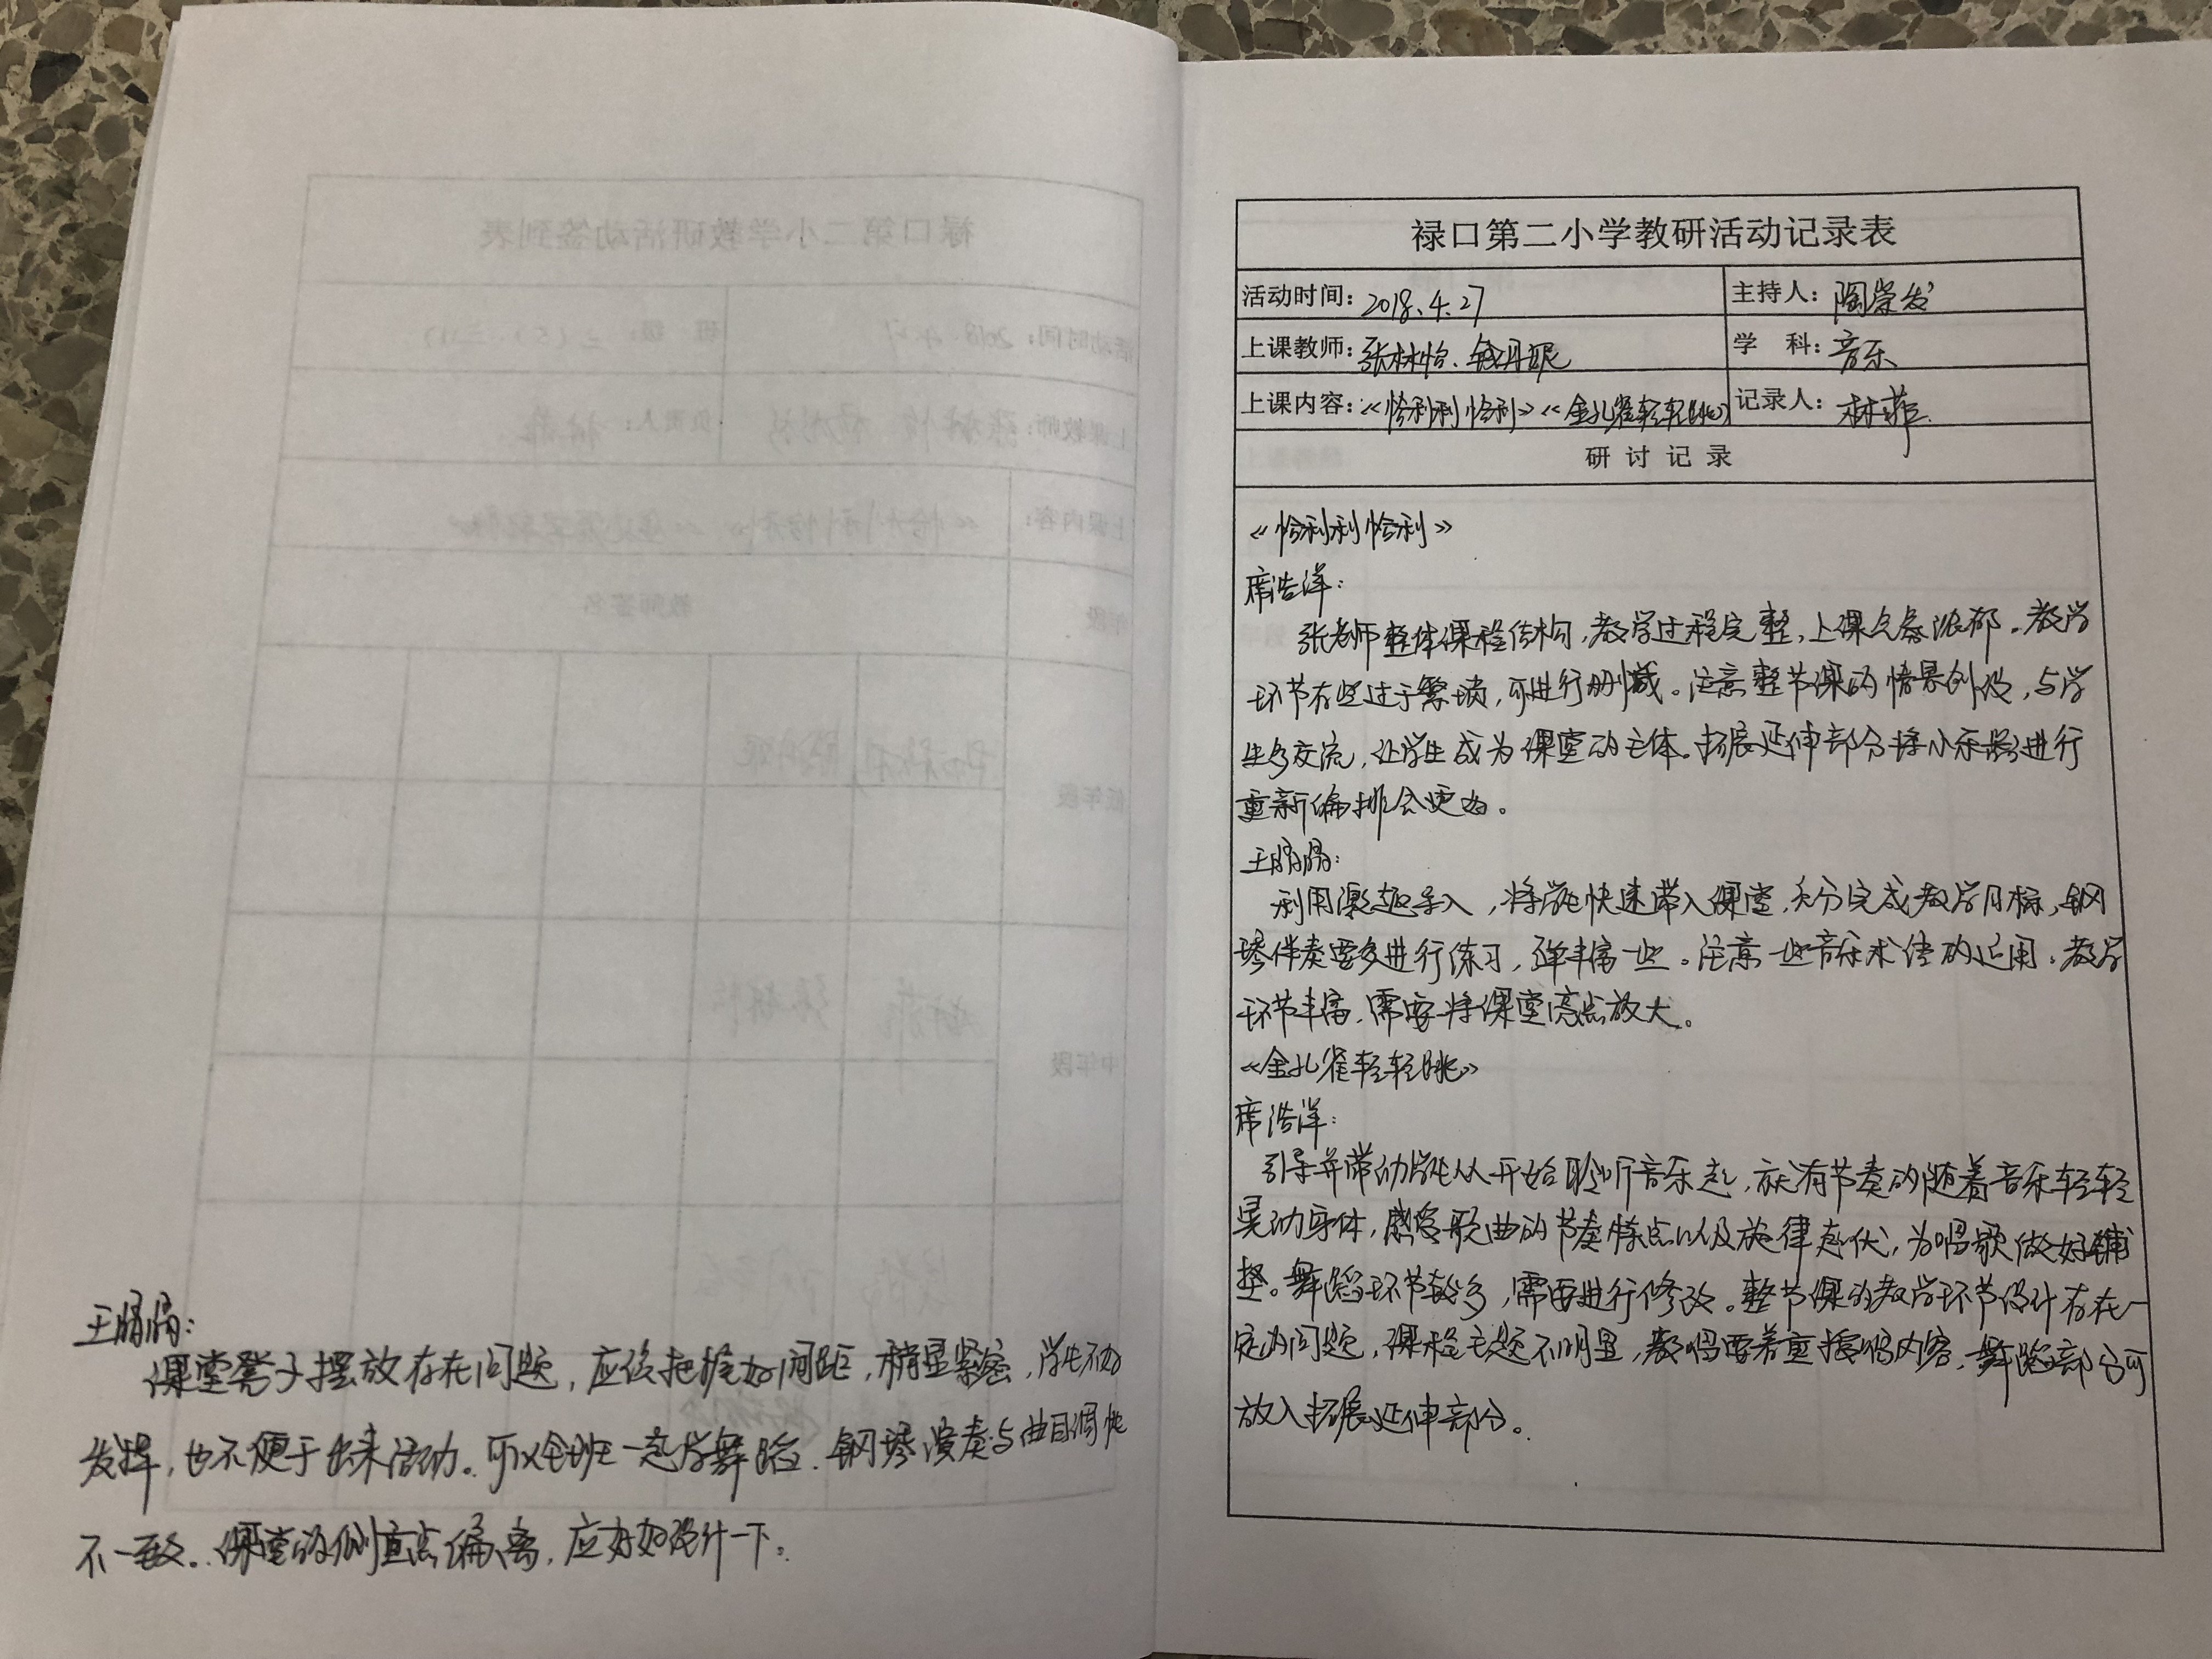 禄口第二小学教研活动记录表
活动时间: 2018.4.27 主持人: 陶荣发
上课教师: 张林怡、钱丹妮 学 科: 音乐
上课内容: 《恰利利恰利》《金孔雀轻轻跳》 记录人: 林菲
研讨记录
《恰利利恰利》
席浩洋:
张老师整体课程结构,教学过程完整,上课气氛浓郁。教学
环节有些过于繁琐,可进行删减。注意整节课的情景创设,与学
生多交流,让学生成为课堂的主体。拓展延伸部分将小乐器进行
重新编排会更好。
王腩腩:
利用激趣导入,将学生快速带入课堂,充分完成教学目标,钢
琴伴奏要多进行练习,弹丰富一些。注意一些音乐术语的运用。教学
环节丰富,需要将课堂亮点放大。
《金孔雀轻轻跳》
席浩洋:
引导并带动学生从开始聆听音乐起,就有节奏的随着音乐轻轻
晃动身体,感受歌曲的节奏特点以及旋律起伏,为唱歌做好铺
垫。舞蹈环节较多,需要进行修改。整节课的教学环节设计存在一
定的问题,课程主题不明显,教唱要着重授唱内容,舞蹈部分可
放入拓展延伸部分。
王腩腩:
课堂凳子摆放存在问题,应该把握好间距,稍显紧密,学生不好
发挥,也不便于出来活动。可以全班一起学舞蹈。钢琴演奏与曲目调性
不一致。课堂的侧重点偏离,应好好设计一下。